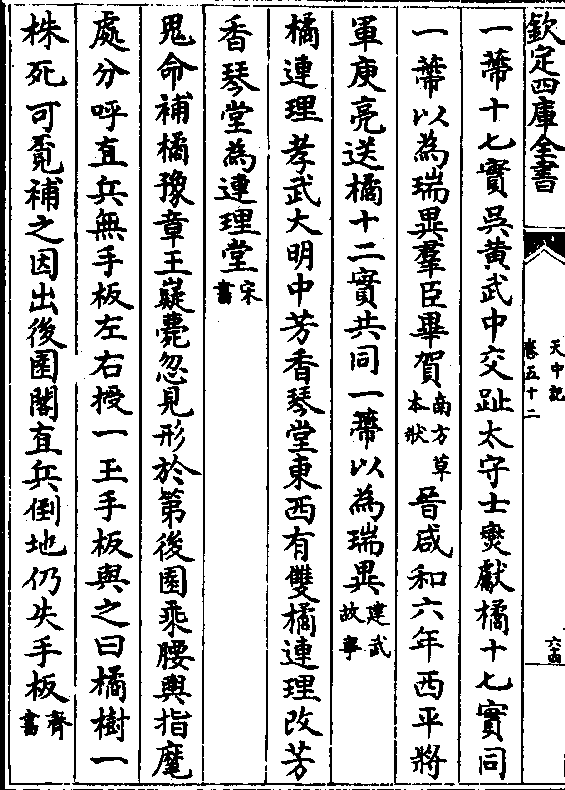 欽定四庫全書
天中記
卷五十二
六西
一蔕十七實吳黃武中交趾太守士燮獻橘十七實同
一蔕以為瑞異羣臣畢賀南方草本狀晉咸和六年西平將
軍庾亮送橘十二實共同一蔕以為瑞異建武故事
橘連理孝武大明中芳香琴堂東西有雙橘連理改芳
香琴堂為連理堂宋書
鬼命補橘豫章王嶷薨忽見形於第後園乘腰輿指麾
處分呼直兵無手板左右授一玉手板與之曰橘樹一
株死可覓補之因出後園閣直兵倒地仍失手板齊書